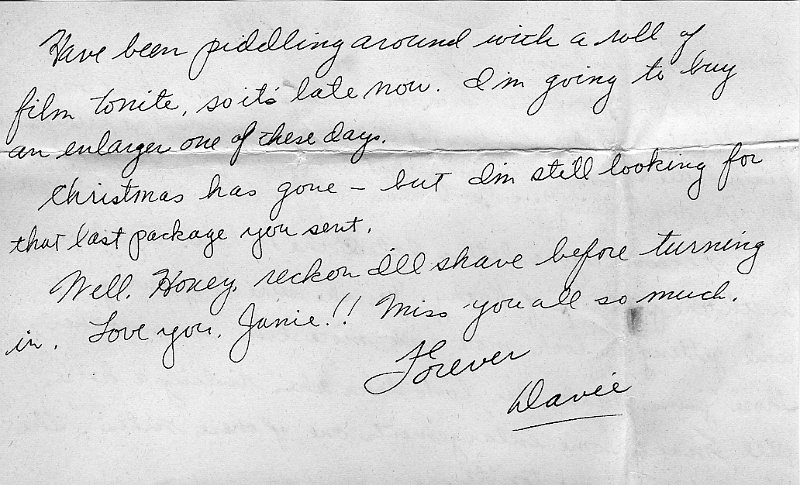 Have been piddling around with a roll of
film tonite, so it's late now. I'm going to buy
an enlarger one of these days.
Christmas has gone – but I'm still looking for
that last package you sent.
Well, Honey, reckon I'll shave before turning
in. Love you, Janie!! Miss you all so much.
Forever
Davie